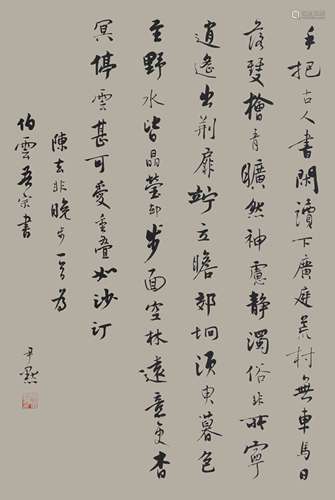 手把古人書閑讀下廣庭荒村無車馬日
落雙檜青曠然神慮靜濁俗非所寧
逍遙出荆扉竚立瞻郊坰須臾暮色
至野水皆晶瑩却步面空林遠意更杳
冥停雲甚可愛重疊如沙汀
陳去非晚步一首為
伯雲吾宗書
尹默